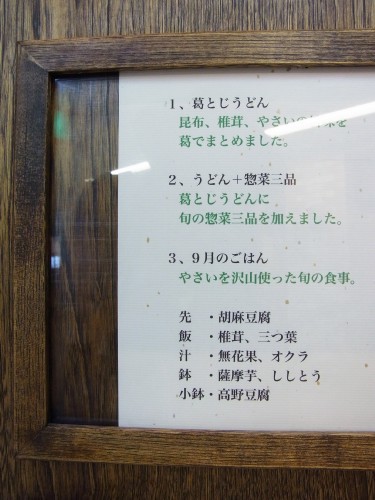 1、葛とじうどん
昆布、椎茸、やさいの
葛でまとめました。
2、うどん+惣菜三品
葛とじうどんに
旬の惣菜三品を加えました。
3、9月のごはん
やさいを沢山使った旬の食事。
先 ・胡麻豆腐
飯 ・椎茸、三つ葉
汁 ・無花果、オクラ
鉢 ・薩摩芋、ししとう
小鉢・高野豆腐